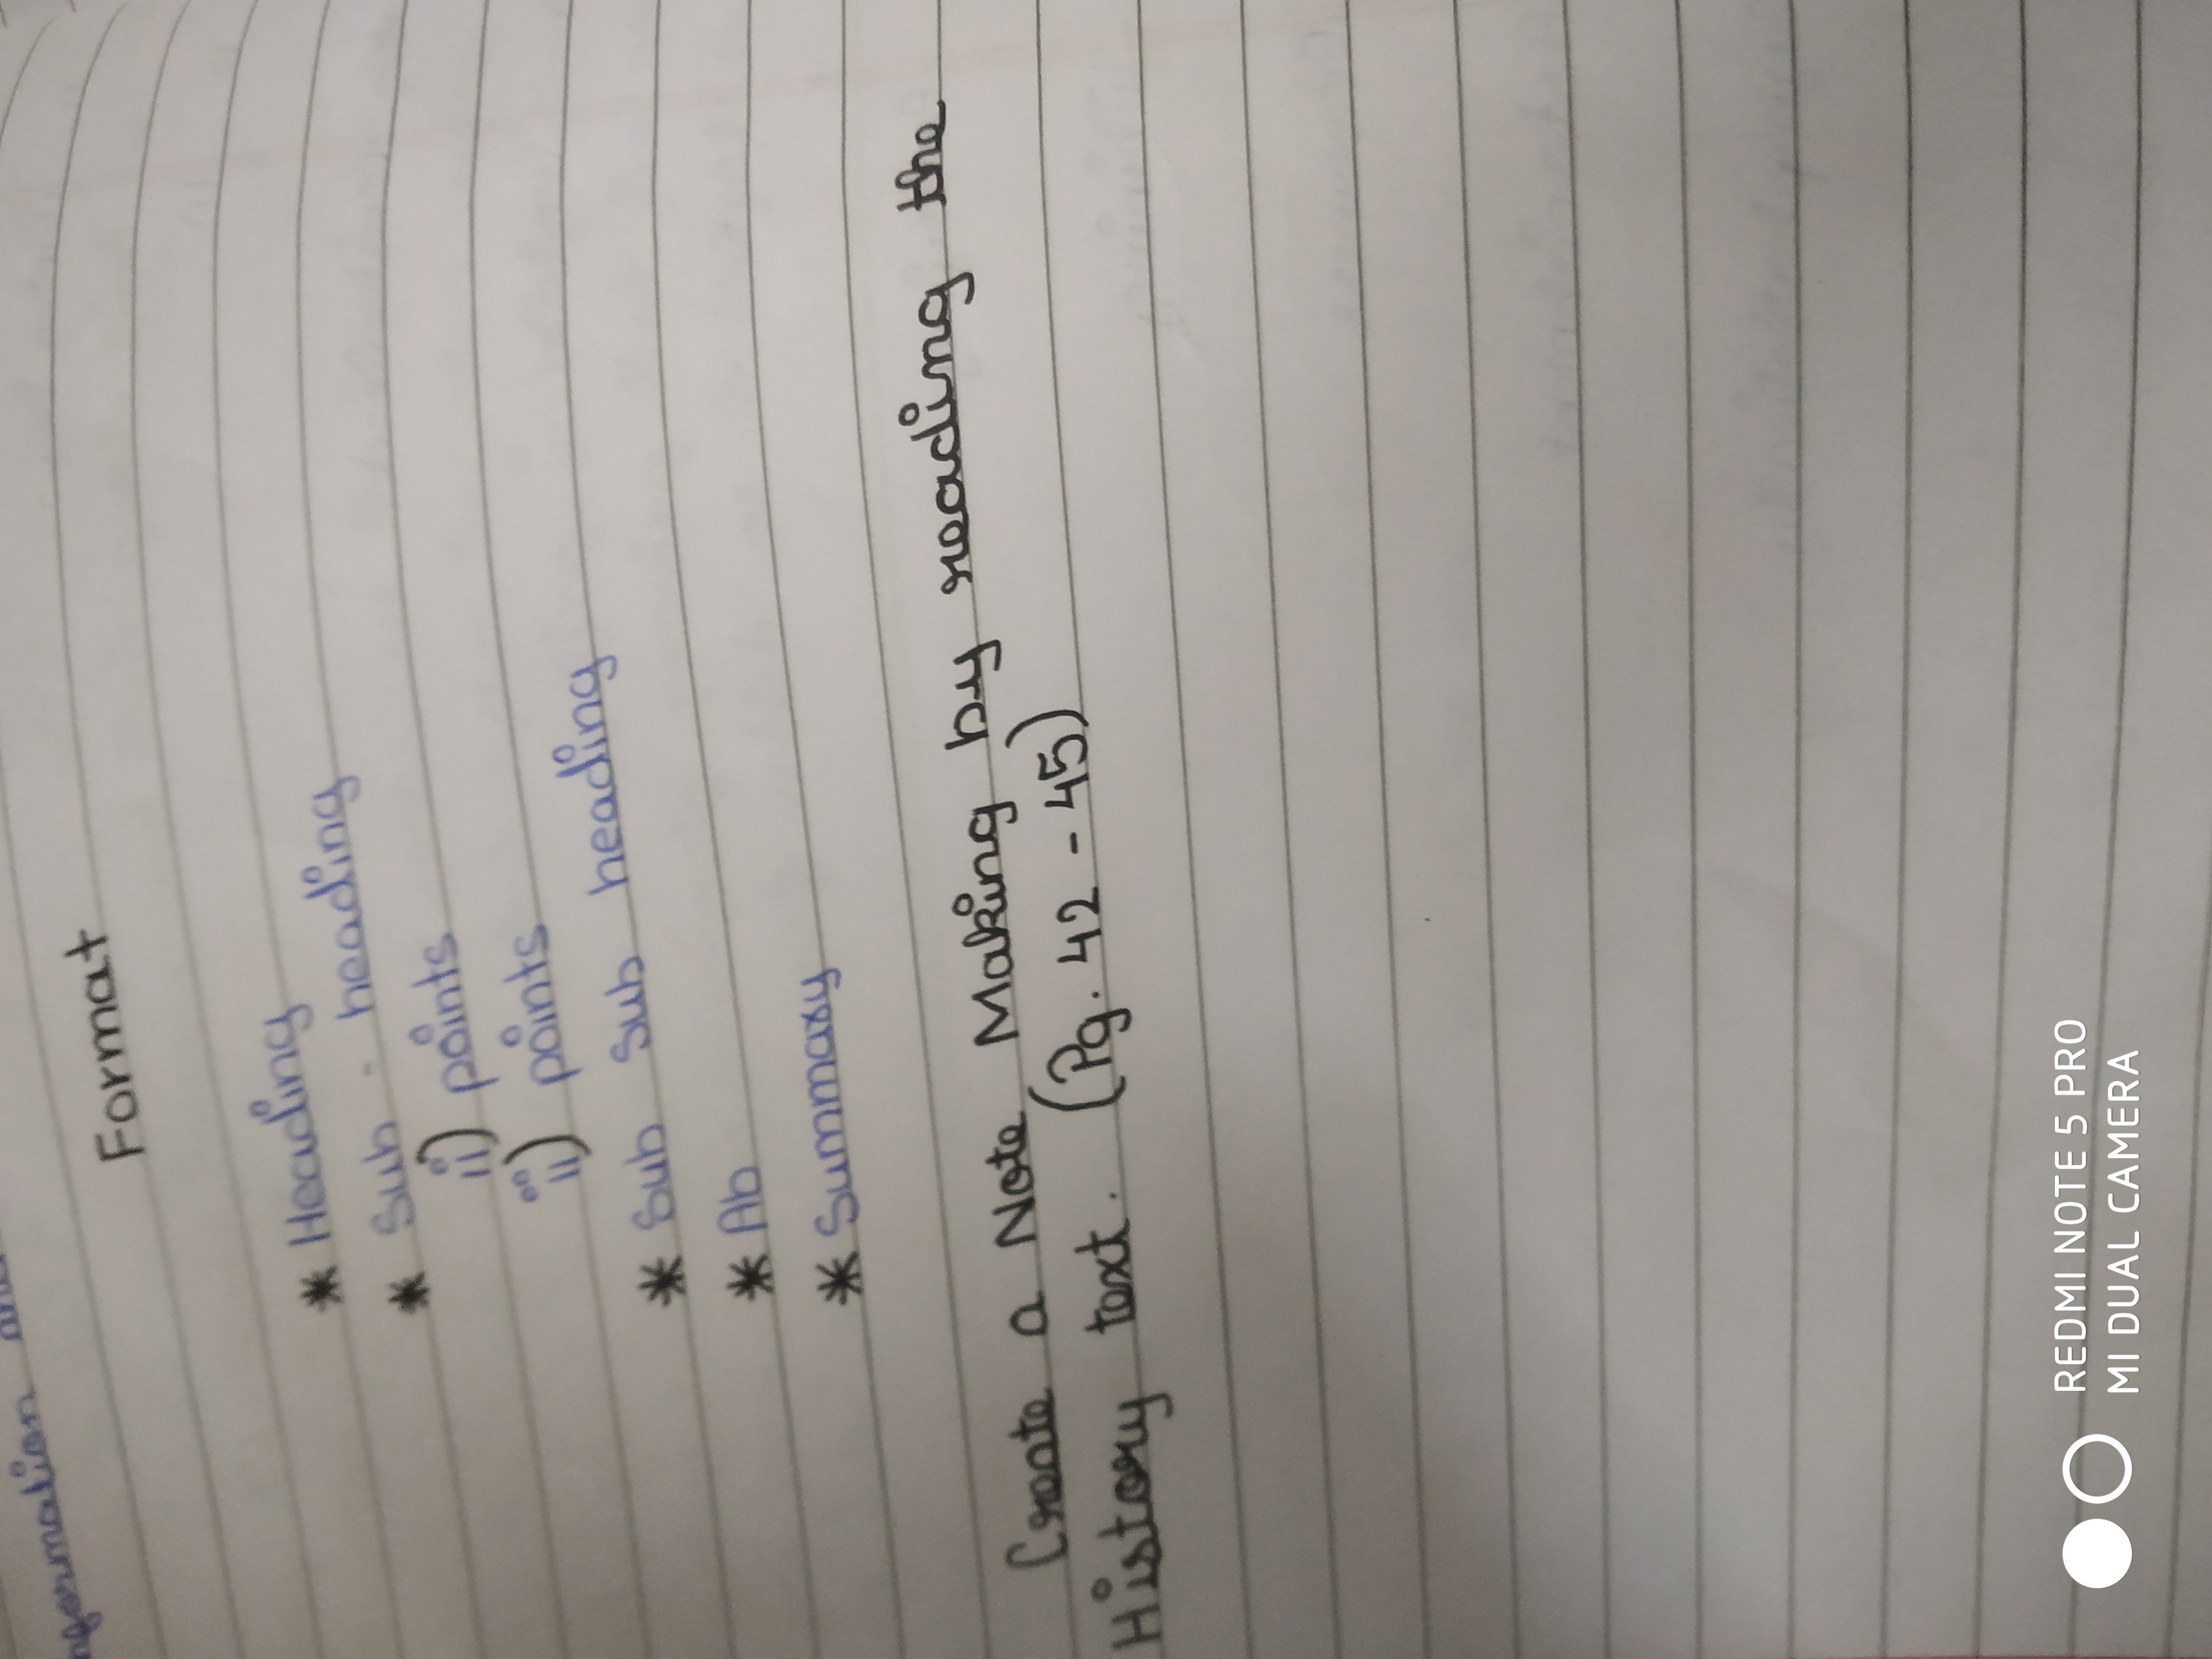 Format
* Heading
* Sub - heading
ii) points
ii) points
* Sub Sub heading
* Ab
* Summary
Create a Note Making by reading the
History text. (Pg. 42 - 45)
REDMI NOTE 5 PRO
MI DUAL CAMERA